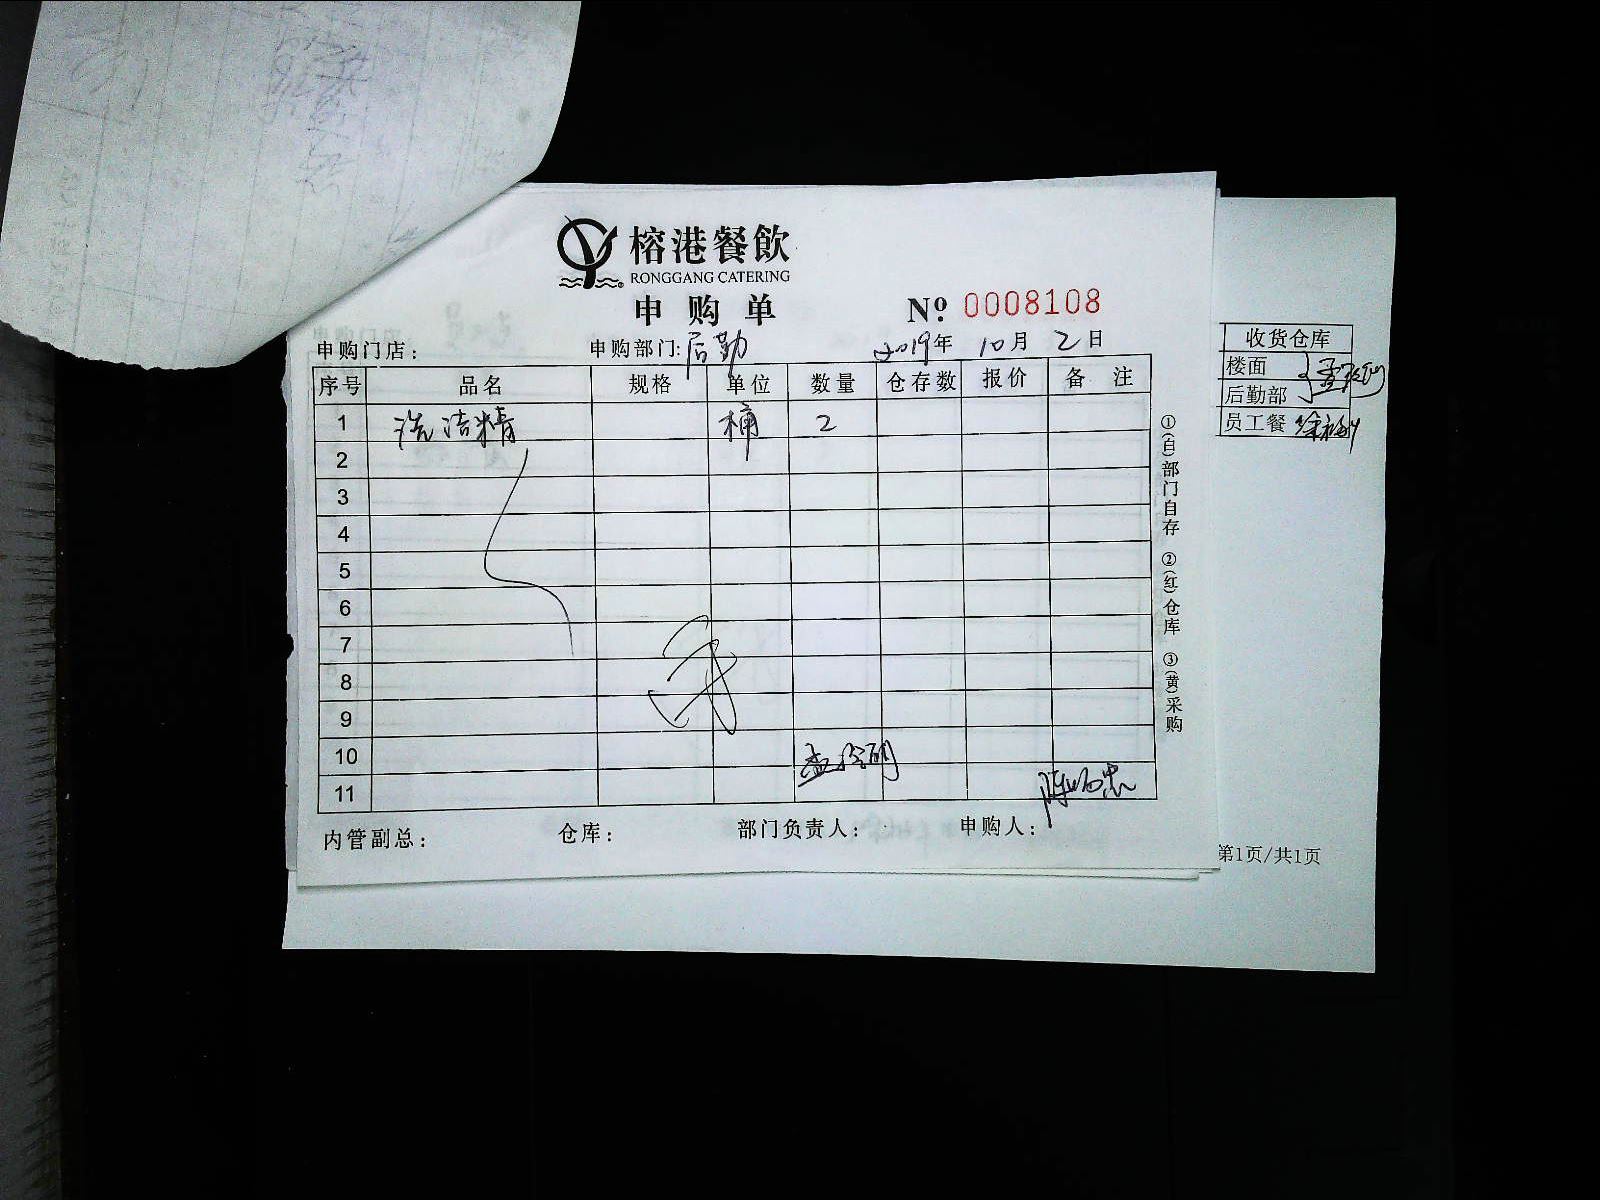 榕港餐飲
RONGGANG CATERING
申购单
№ 0008108
申购门店： 申购部门: 后勤 2019年 10月 2日
序号 品名 规格 单位 数量 仓存数 报价 备注
1 洗洁精 桶 2
2
3
4
5
6
7
8
9
10
11
内管副总： 仓库： 部门负责人： 申购人：
①(白)部门自存 ②(红)仓库 ③(黄)采购
收货仓库
楼面
后勤部
员工餐
第1页/共1页